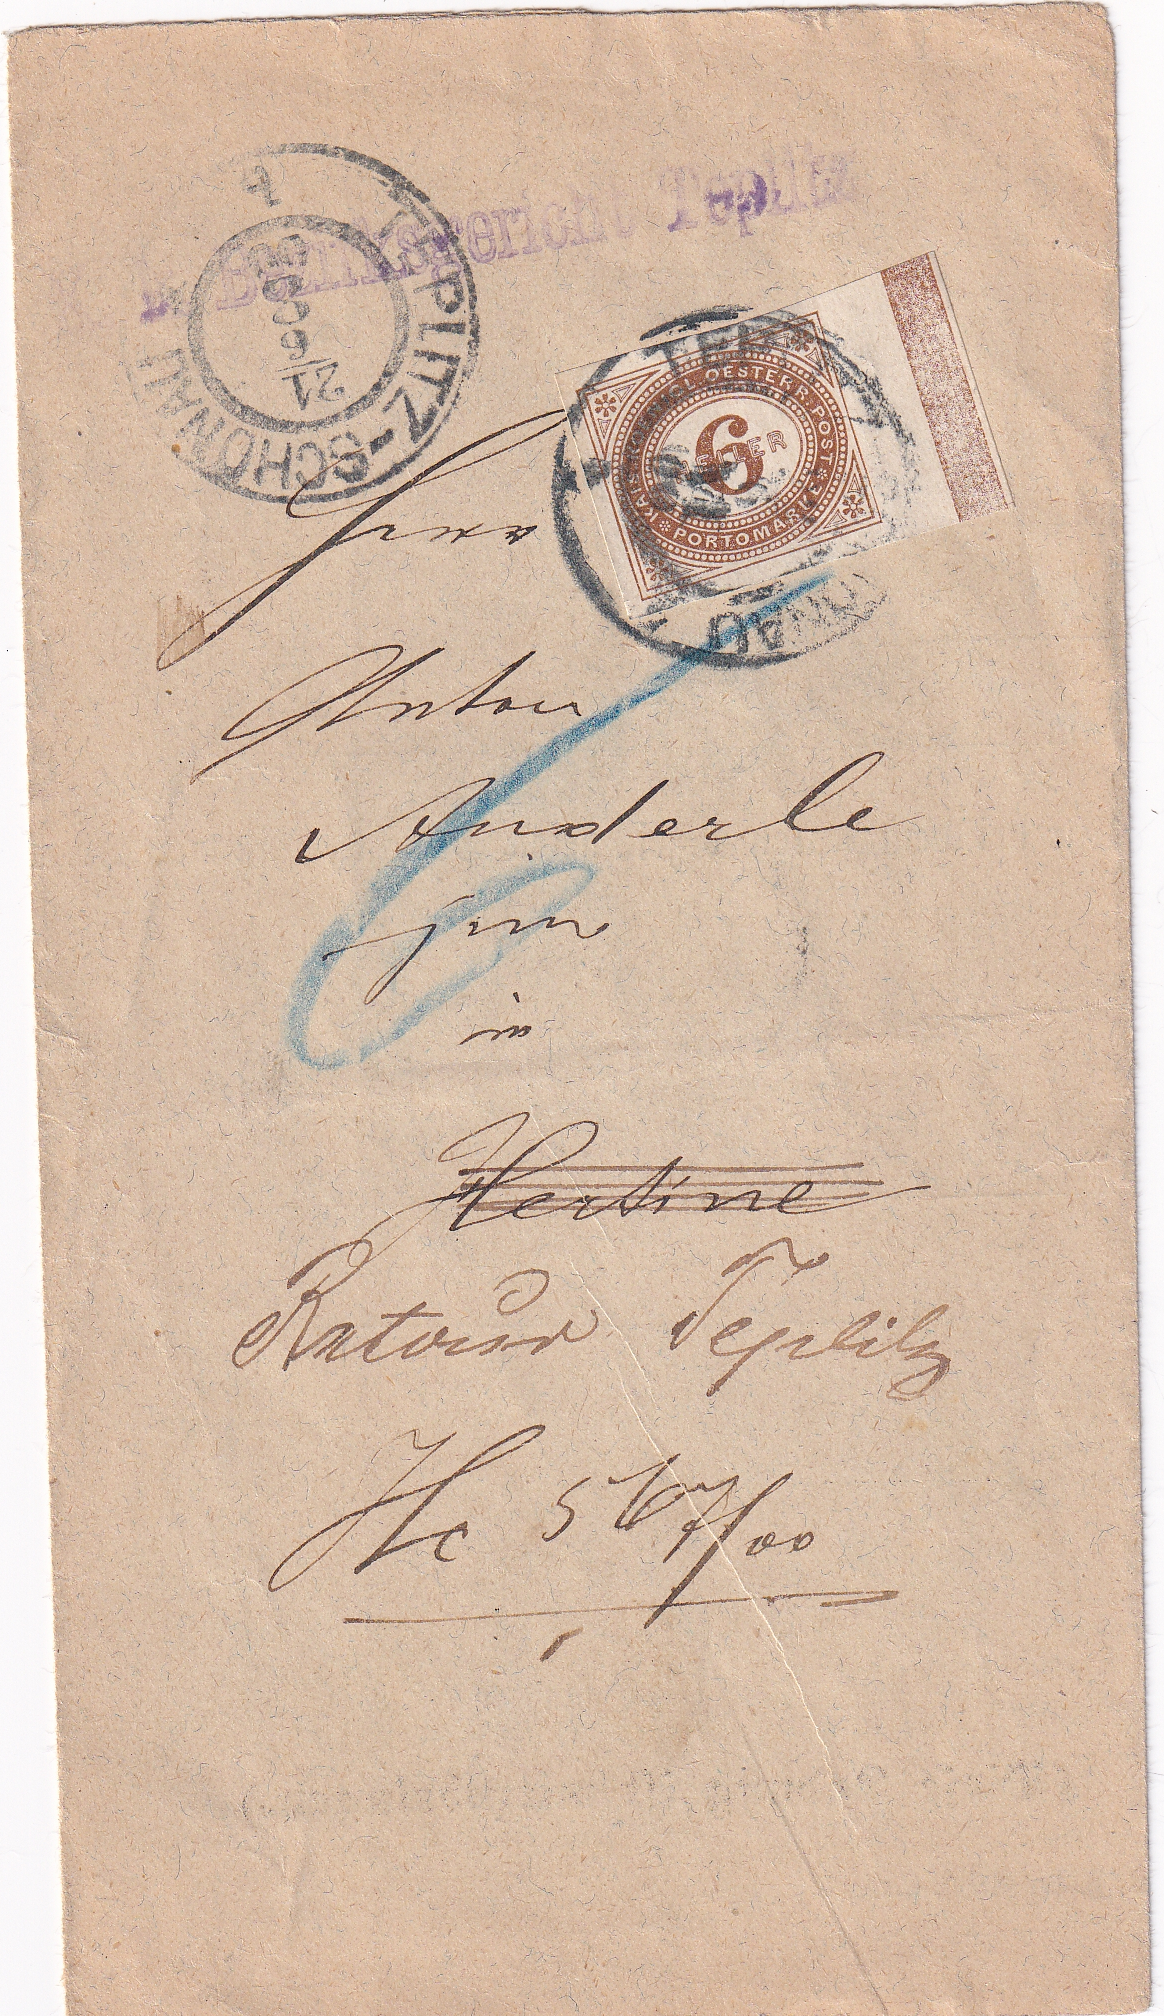 Bezirksgericht Teplitz
TEPLITZ-SCHÖNAU
21
6
00
KAIS. KÖNIGL. OESTERR. POST
6
HELLER
PORTOMARKE
Herr
Anton
Anderle
jun
in
Hertine
Retour Teplitz
Hc 567/00
6